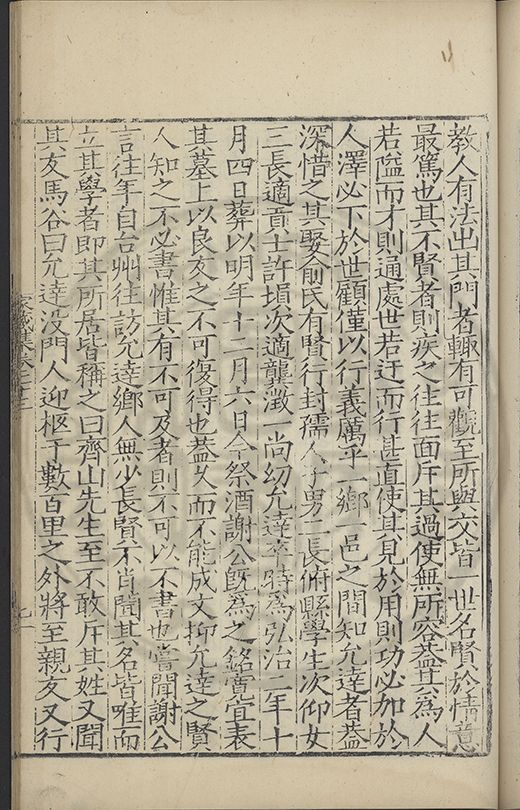 教人有法出其門者輙有可觀至所與交皆一世名賢於情意
最篤也其不賢者則疾之往往面斥其過使無所容葢其為人
若隘而才則通處世若迂而行甚直使其見於用則功必加於
人澤必下於世顧僅以行義厲乎一鄉一邑之間知允達者葢
深惜之其娶俞氏有賢行封孺人子男二長俯縣學生次仰女
三長適貢士許塤次適龔澂一尚幼允達卒時為弘治二年十
月四日葬以明年十二月六日今祭酒謝公旣為之銘寛宜表
其墓上以良友之不可復得也葢久而不能成文抑允達之賢
人知之不必書惟其有不可及者則不可以不書也嘗聞謝公
言往年自台州往訪允達鄉人無少長賢不肖聞其名皆唯而
立其學者即其所居皆稱之曰齊山先生至不敢斥其姓又聞
其友馬谷曰允達没門人迎柩于數百里之外將至親友又行